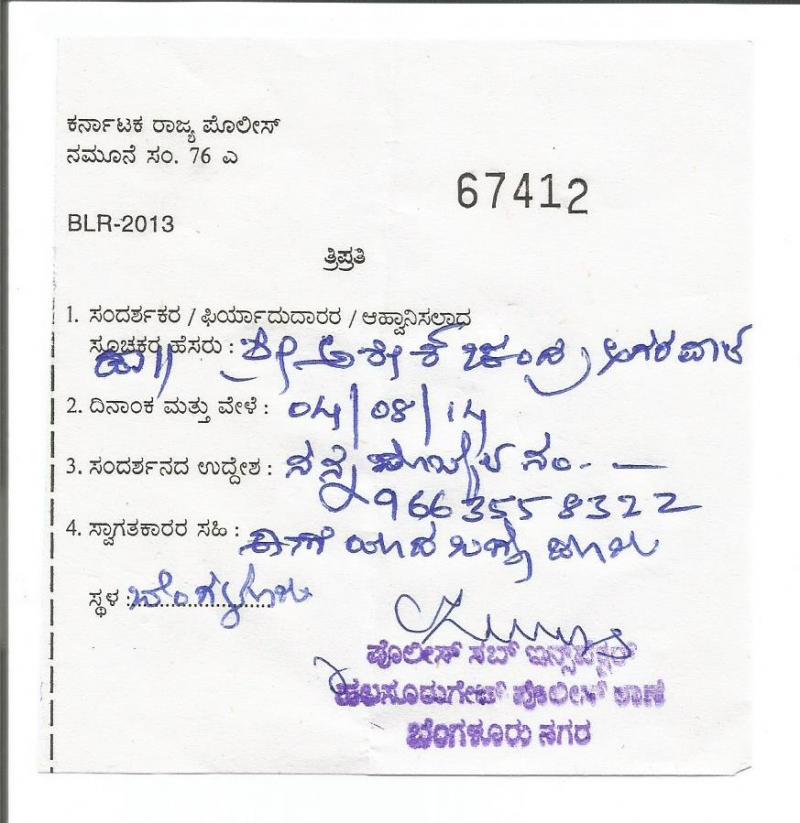 ಕರ್ನಾಟಕ ರಾಜ್ಯ ಪೊಲೀಸ್
ನಮೂನೆ ಸಂ. 76 ಎ
67412
BLR-2013
ತ್ರಿಪ್ರತಿ
1. ಸಂದರ್ಶಕರ / ಫಿರ್ಯಾದುದಾರರ / ಆಹ್ವಾನಿಸಲಾದ
ಸೂಚಕರ ಹೆಸರು : ಶ್ರೀ ಅಶೋಕ್ ಚಂದ್ರ ಅಗರವಾಲ
2. ದಿನಾಂಕ ಮತ್ತು ವೇಳೆ : 04/08/14
3. ಸಂದರ್ಶನದ ಉದ್ದೇಶ : ನನ್ನ ಮೊಬೈಲ ನಂ. —
9663558322
4. ಸ್ವಾಗತಕಾರರ ಸಹಿ :
ಸ್ಥಳ : ಬೆಂಗಳೂರು
ಪೊಲೀಸ್ ಸಬ್ ಇನ್ಸ್‌ಪೆಕ್ಟರ್
ಹಲಸೂರುಗೇಟ್ ಪೊಲೀಸ್ ಠಾಣೆ
ಬೆಂಗಳೂರು ನಗರ